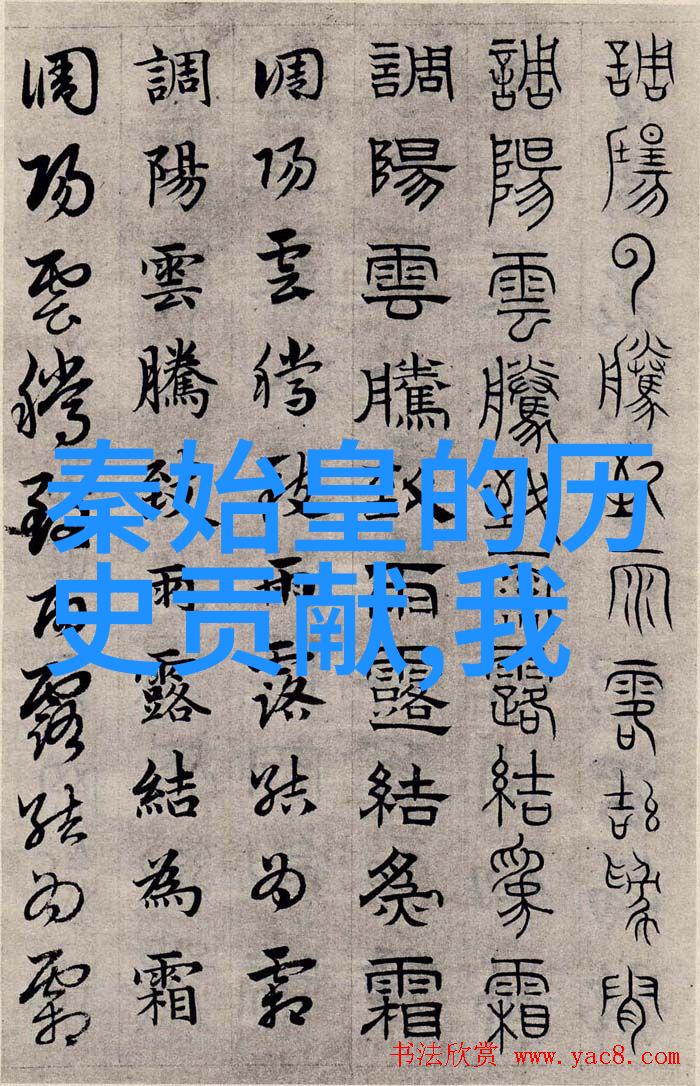 調陽雲騰致雨露結為霜
調陽雲騰致雨露結為霜
調陽雲騰致雨露結為霜
調陽雲騰致雨露結為霜
調陽雲騰致雨露結為霜
調陽雲騰致雨露結為霜
秦始皇的历
史贡献,我
书法欣赏 www.yac8.com